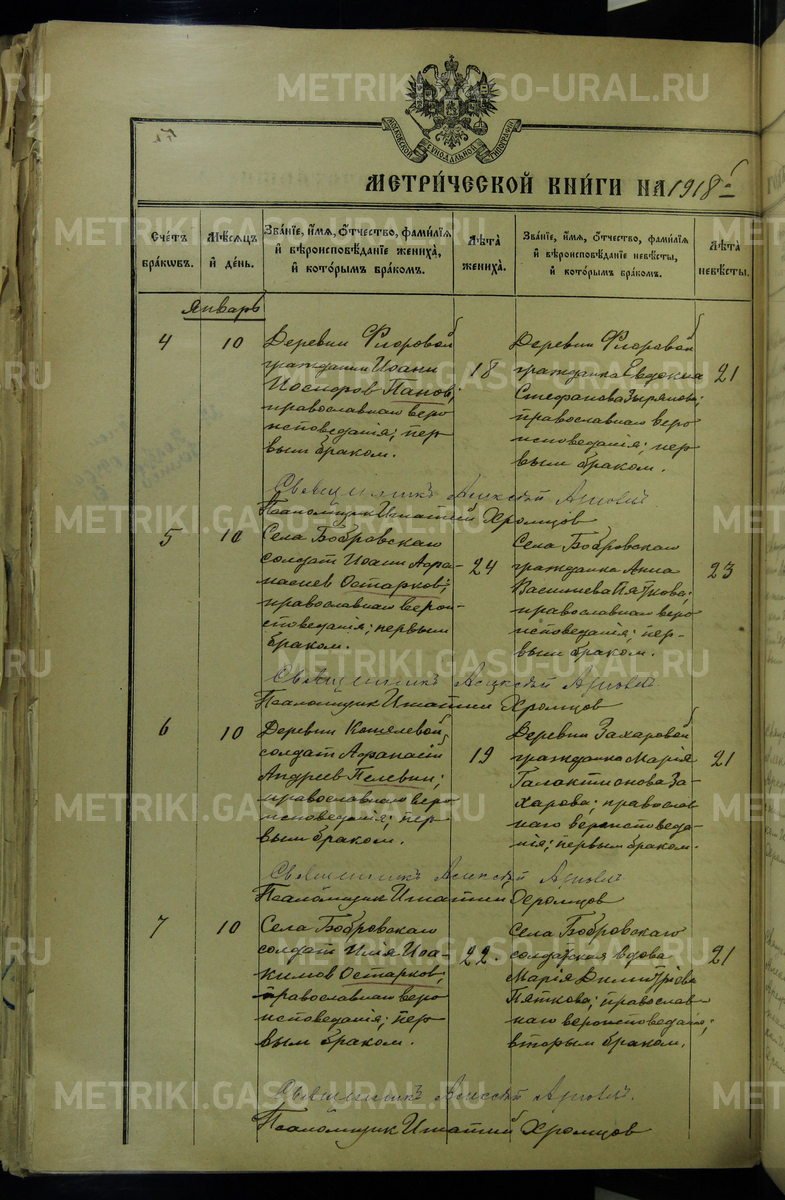 МОСКОВСКОЙ СѴНОДАЛЬНОЙ ТИПОГРАФІИ
МЕТРИ́ЧЕСКОЙ КНИ́ГИ НА 1918 г
Сче́тъ бра́кѡвъ.
Мѣ́сѧцъ и҆ де́нь.
Зва́нїе, и҆́мѧ, ѻ҆́тчество, фами́лїѧ и҆ вѣроисповѣ́данїе жениха̀, и҆ кото́рымъ бра́комъ.
Лѣ́та жениха̀.
Зва́нїе, и҆́мѧ, ѻ҆́тчество, фами́лїѧ и҆ вѣроисповѣ́данїе невѣ́сты, и҆ кото́рымъ бра́комъ.
Лѣ́та невѣ́сты.
Январь
4
10
Деревни Флоровой
гражданин Иоанн
Иосифов Панов;
православнаго веро
исповеданія; пер
вым браком.
18
Деревни Флоровой
гражданка Евдокия
Стефанова Зырянова;
православнаго веро
исповеданія; пер
вым браком.
21
Священникъ Алексѣй
Псаломщик Игнатий Хромцов
5
10
Села Бобровскаго
солдат Иоанн Афа-
насиев Остарков;
православнаго верои-
споведанія; первым
браком.
24
Села Бобровскаго
гражданка Анна
Василиева Пяткова;
православнаго веро
исповеданія; пер-
вым браком.
23
Священникъ Алексѣй
Псаломщик Игнатий Хромцов
6
10
Деревни Кошелевой
солдат Афанасий
Андреев Пелевин;
православнаго веро
исповеданія; пер
вым браком.
19
Деревни Захаровой
гражданка Марія
Галактионова За-
харова; православ
наго вероисповеда-
нія; первым браком.
21
Священникъ Алексѣй
Псаломщик Игнатий Хромцов
7
10
Села Бобровскаго
солдат Илия Иоа-
кимов Остарков;
православнаго веро
исповеданія; пер
вым браком.
22.
Села Бобровскаго
солдатская вдова
Марія Димитріева
Пяткова; православ-
наго вероисповеданія;
вторым браком.
21
Священникъ Алексѣй
Псаломщик Игнатий Хромцов
METRIKI.GASO-URAL.RU